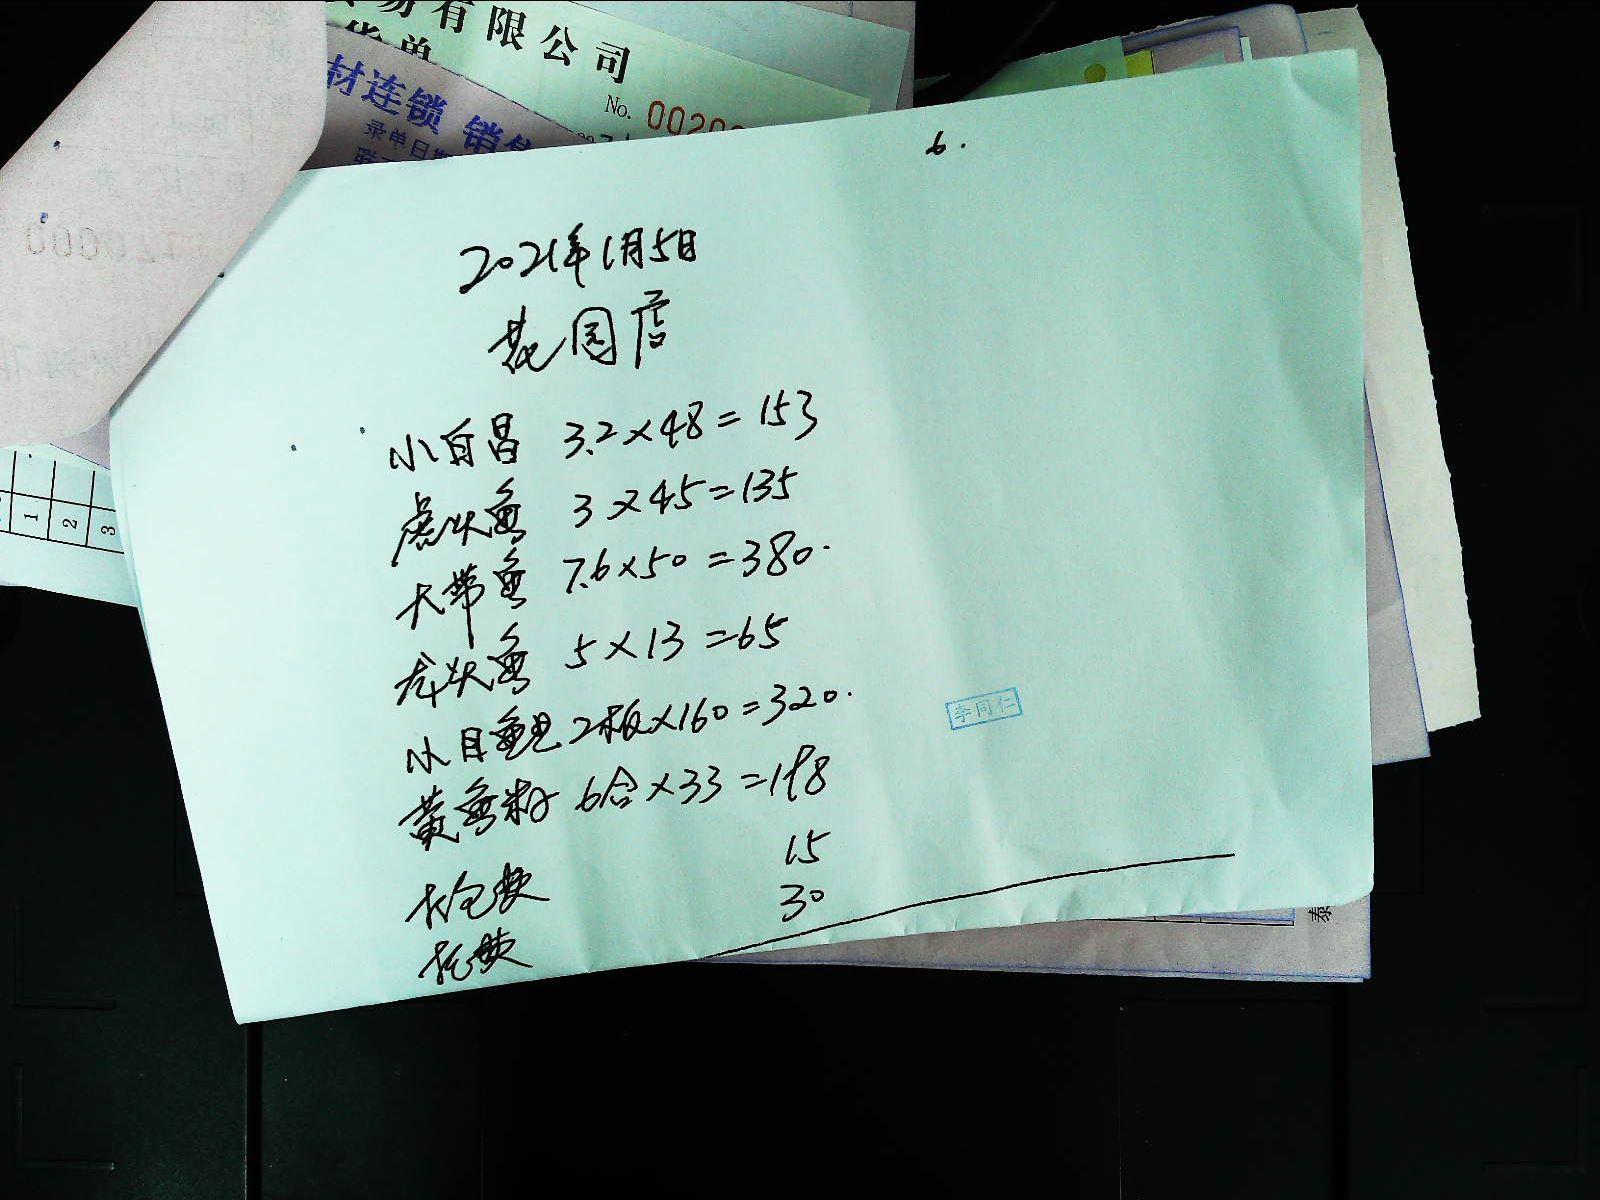 易有限公司
货单
No. 00200
材连锁 销售
录单日期
6.
2021年1月5日
花园店
小白昌 3.2×48=153
虎头鱼 3×45=135
大带鱼 7.6×50=380.
龙头鱼 5×13=65
小目鱼 2板×160=320.
黄鱼籽 6合×33=198
打包费 15
托费 30
李同仁
1
2
3
泰